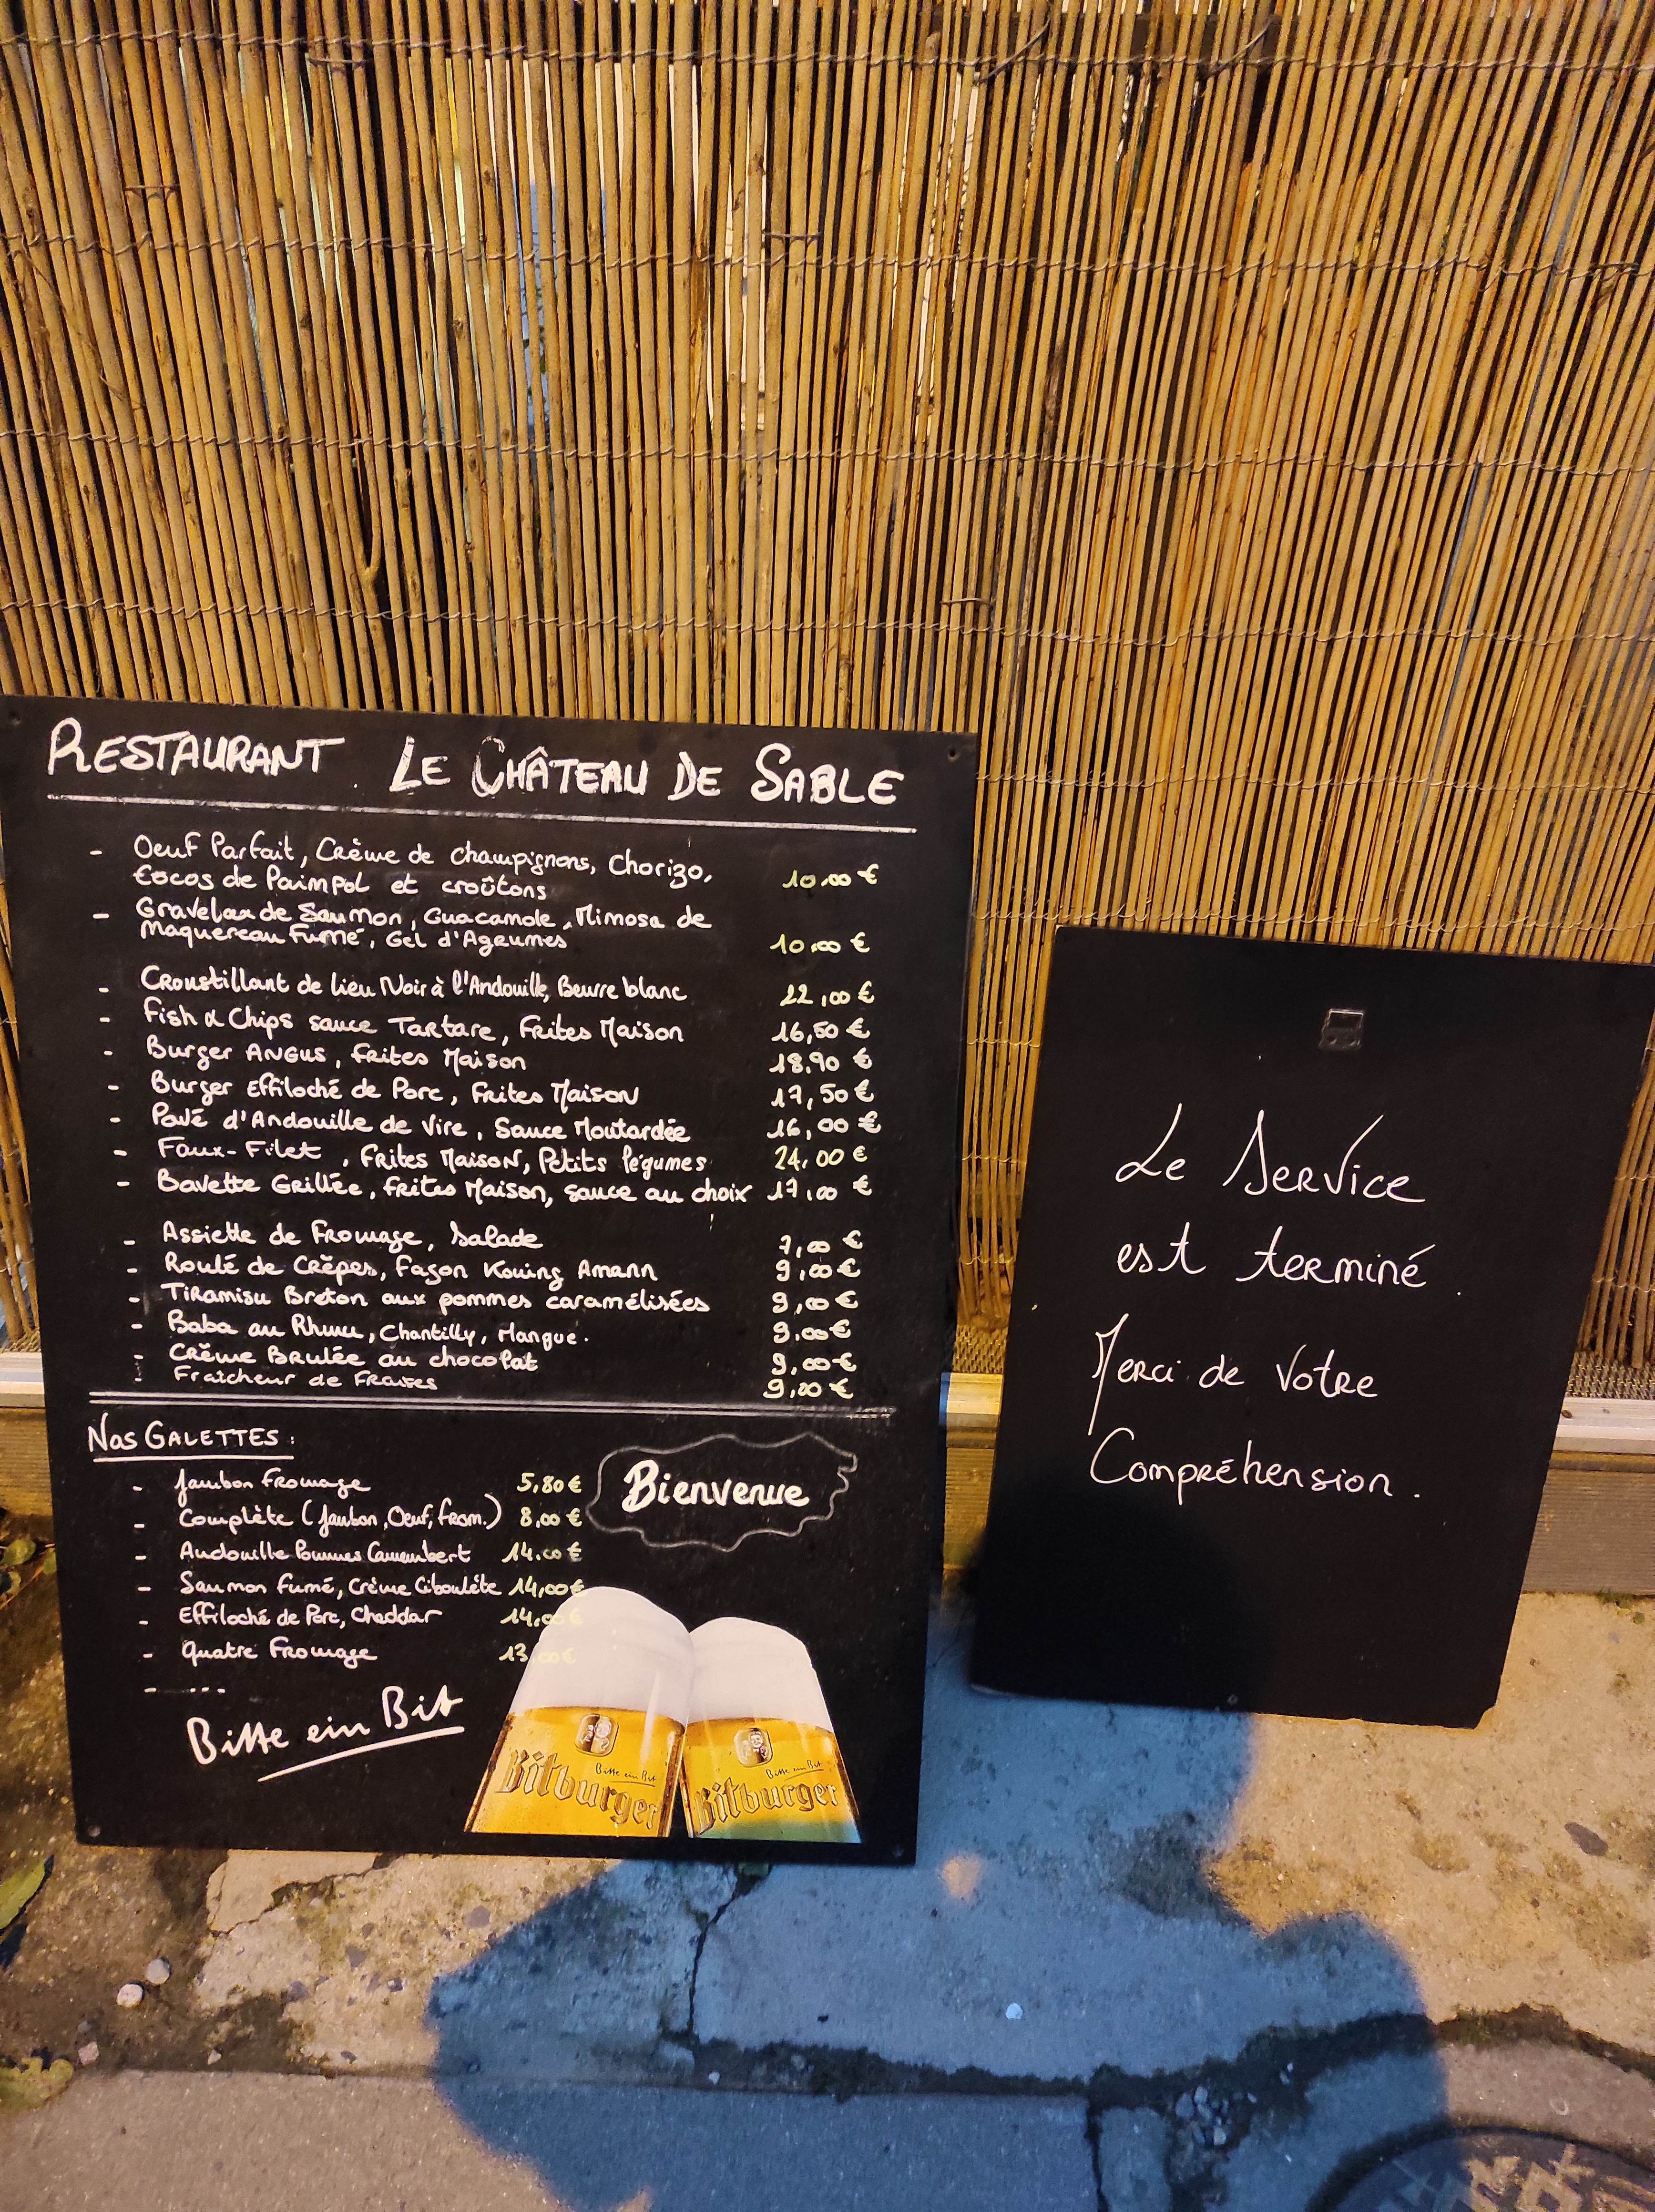 RESTAURANT LE CHÂTEAU DE SABLE
- Oeuf Parfait, Crème de champignons, Chorizo,
Cocos de Paimpol et croûtons 10,00 €
- Gravelax de Saumon, Guacamole, Mimosa de
Maquereau Fumé, Gel d'Agrumes 10,00 €
- Croustillant de Lieu Noir à l'Andouille, Beurre blanc 22,00 €
- Fish & Chips sauce Tartare, Frites Maison 16,50 €
- Burger ANGUS, Frites Maison 18,90 €
- Burger Effiloché de Porc, Frites Maison 17,50 €
- Pavé d'Andouille de Vire, Sauce Moutardée 16,00 €
- Faux-Filet, Frites Maison, Petits légumes 24,00 €
- Bavette Grillée, Frites Maison, sauce au choix 17,00 €
- Assiette de Fromage, Salade 7,00 €
- Roulé de Crêpes, Façon Kouing Amann 9,00 €
- Tiramisu Breton aux pommes caramélisées 9,00 €
- Baba au Rhum, Chantilly, Mangue. 9,00 €
- Crème Brulée au chocolat 9,00 €
- Fraicheur de Fraises 9,00 €
Nos GALETTES :
- Jambon Fromage 5,80 €
- Complète (Jambon, Oeuf, From.) 8,00 €
- Andouille Pommes Camembert 14,00 €
- Saumon Fumé, Crème Ciboulète 14,00 €
- Effiloché de Porc, Cheddar 14,00 €
- Quatre Fromage 13,00 €
- ...
Bienvenue
Bitte ein Bit
Bitte ein Bit
Bitburger
Bitte ein Bit
Bitburger
Le Service
est terminé.
Merci de Votre
Compréhension.